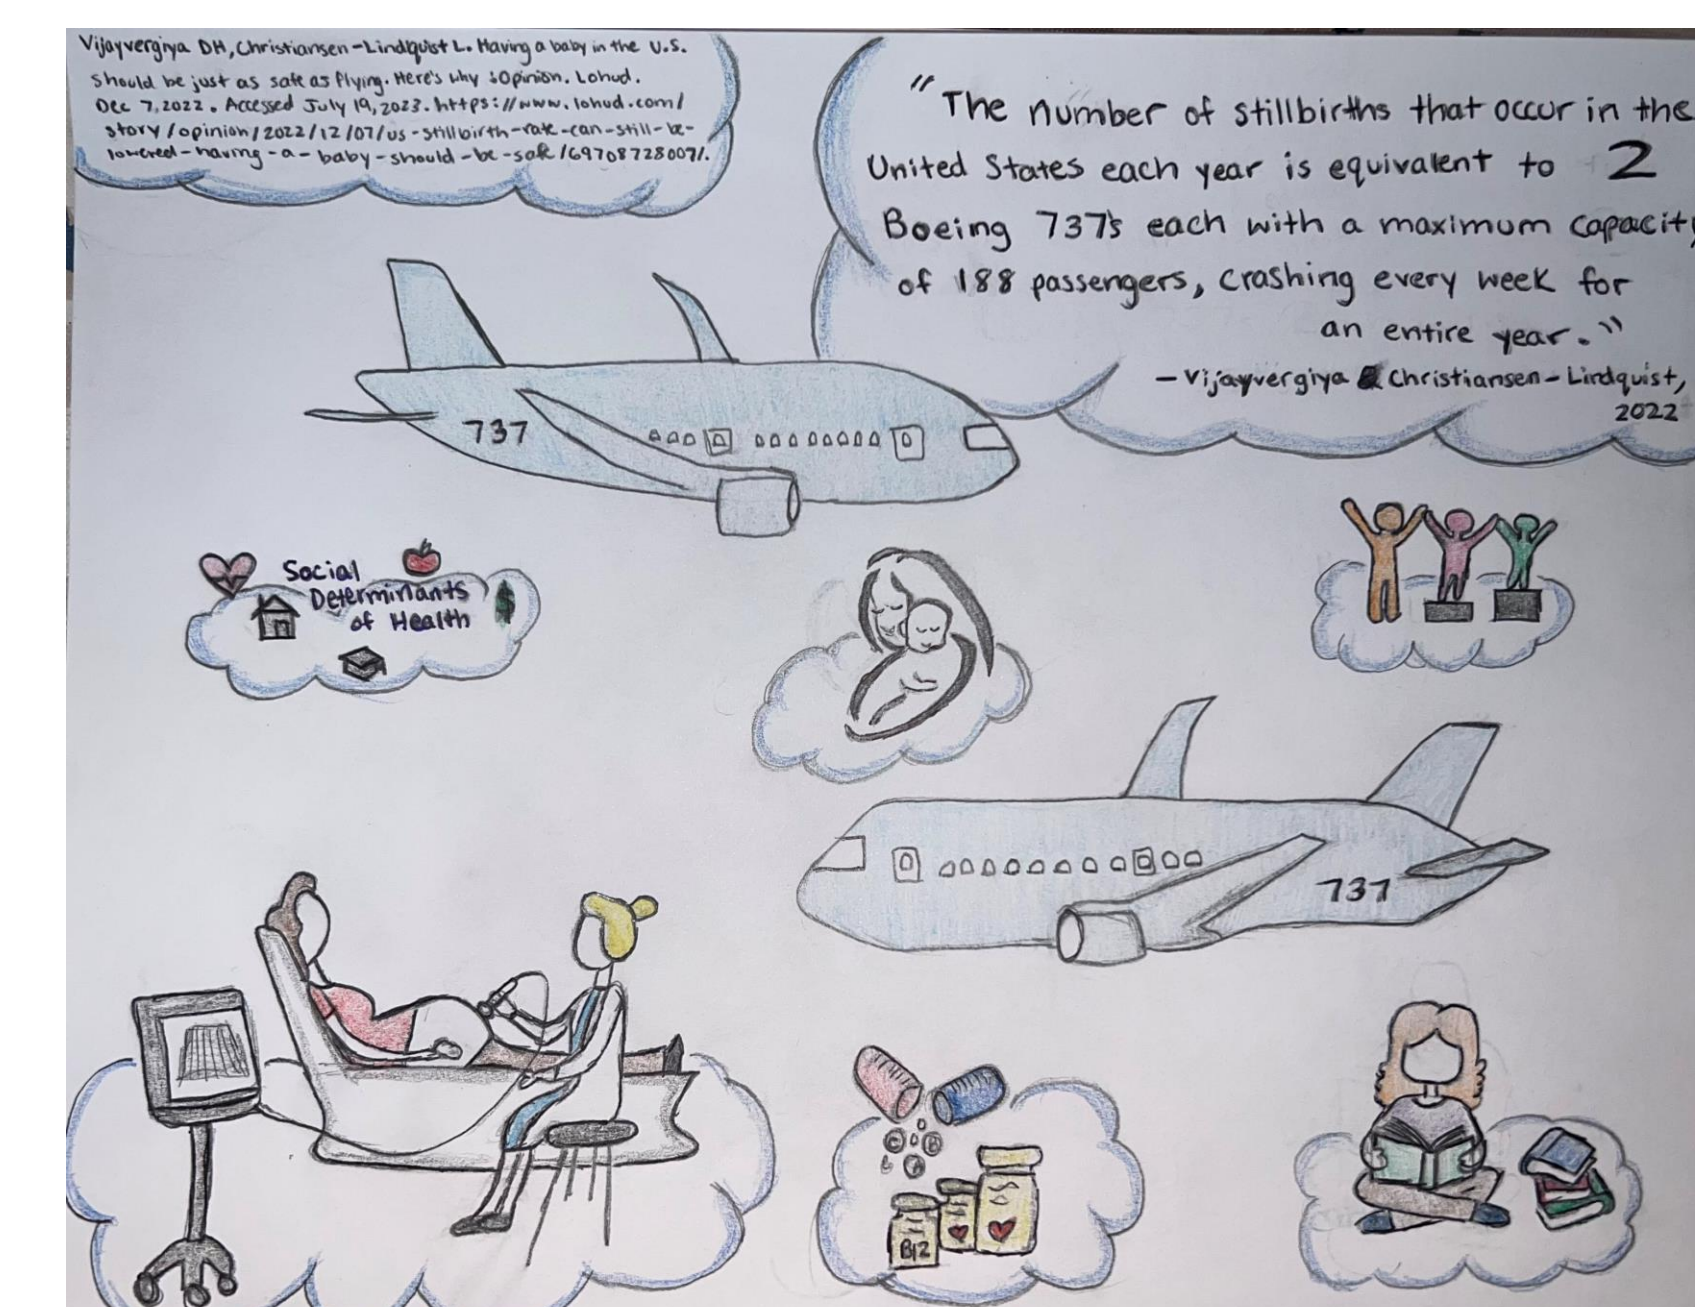 Vijayvergiya DH, Christiansen-Lindquist L. Having a baby in the U.S.
should be just as safe as flying. Here's why : Opinion. Lohud.
Dec 7, 2022. Accessed July 19, 2023. https://www.lohud.com/
story/opinion/2022/12/07/us-stillbirth-rate-can-still-be-
lowered-having-a-baby-should-be-safe/69708728007/.
"The number of stillbirths that occur in the
United States each year is equivalent to 2
Boeing 737's each with a maximum capacity
of 188 passengers, crashing every week for
an entire year."
- Vijayvergiya & Christiansen-Lindquist,
2022
737
Social
Determinants
of Health
$
737
B12